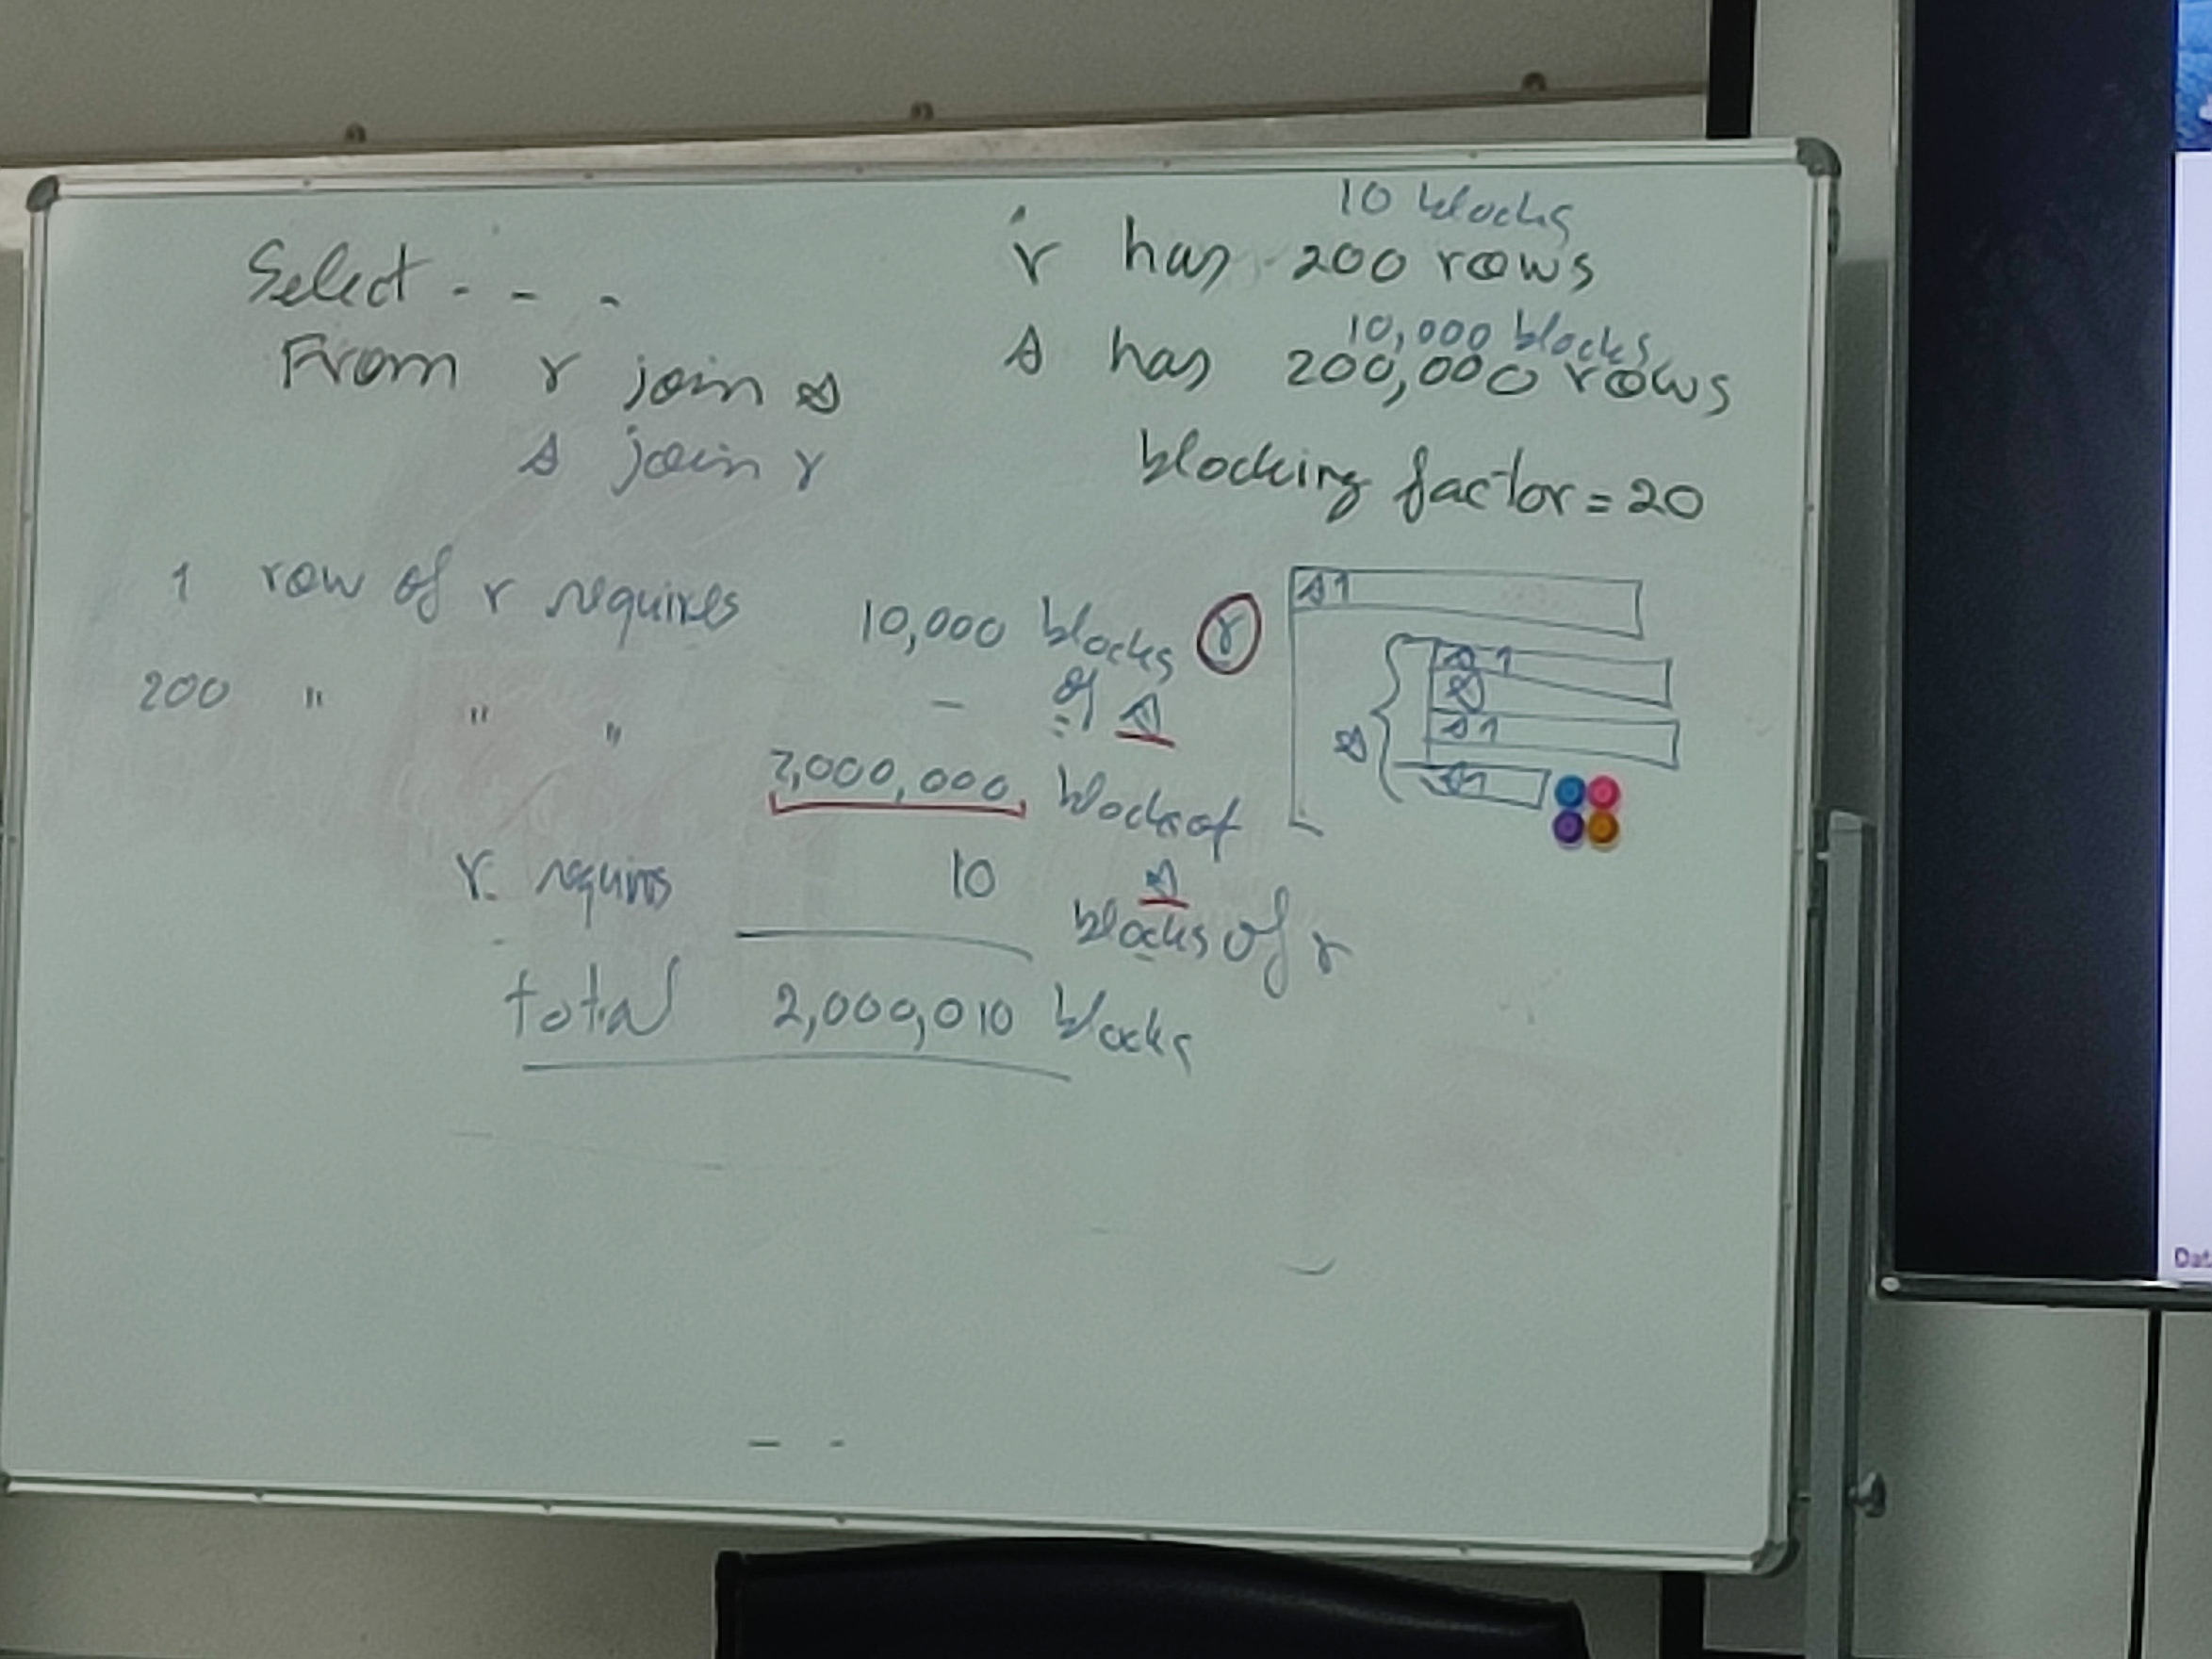 Select - - -
From r join s
s join r
10 blocks
r has 200 rows
10,000 blocks
s has 200,000 rows
blocking factor = 20
1 row of r requires 10,000 blocks
of s
200 " " "
2,000,000 blocks of
s
r requires 10 blocks of r
total 2,000,010 blocks
r
s1
s 1
s
s1
Dat